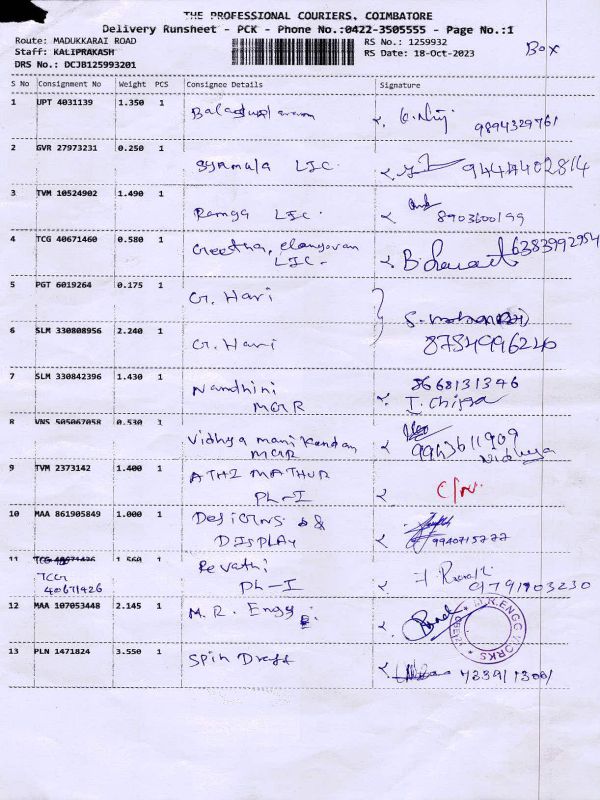 THE PROFESSIONAL COURIERS, COIMBATORE
Delivery Runsheet - PCK - Phone No.:0422-3505555 - Page No.:1
Route: MADUKKARAI ROAD
RS No.: 1259932
Box
Staff: KALIPRAKASH
RS Date: 18-Oct-2023
DRS No.: DCJB125993201
S No Consignment No Weight PCS Consignee Details Signature
1 UPT 4031139 1.350 1
9894329761
2 GVR 27973231 0.250 1
Syamala LIC. 9444402814
3 TVM 10524902 1.490 1
Ramya LIC. 8903600199
4 TCG 40671460 0.580 1 Geetha, elangovan 6383992954
LIC.
5 PGT 6019264 0.175 1 G. Hari
6 SLM 330808956 2.240 1 G. Hari 8754996220
7 SLM 330842396 1.430 1 Nandhini 8668131346
MGR
8 VNS 505067058 0.530 1 Vidhya manikandan 9943611909
MGR Vidhya
9 TVM 2373142 1.400 1 ATHI MATHUR
Ph-I
10 MAA 861905849 1.000 1 Designs &
DISPLAY 9940715777
11 TCG 40671426 1.560 1 Revathi
TCG Ph-I 9791903230
40671426
12 MAA 107053448 2.145 1 M.R. Engg
M.R.ENGG WORKS
13 PLN 1471824 3.550 1 Spin Draft 7339113001